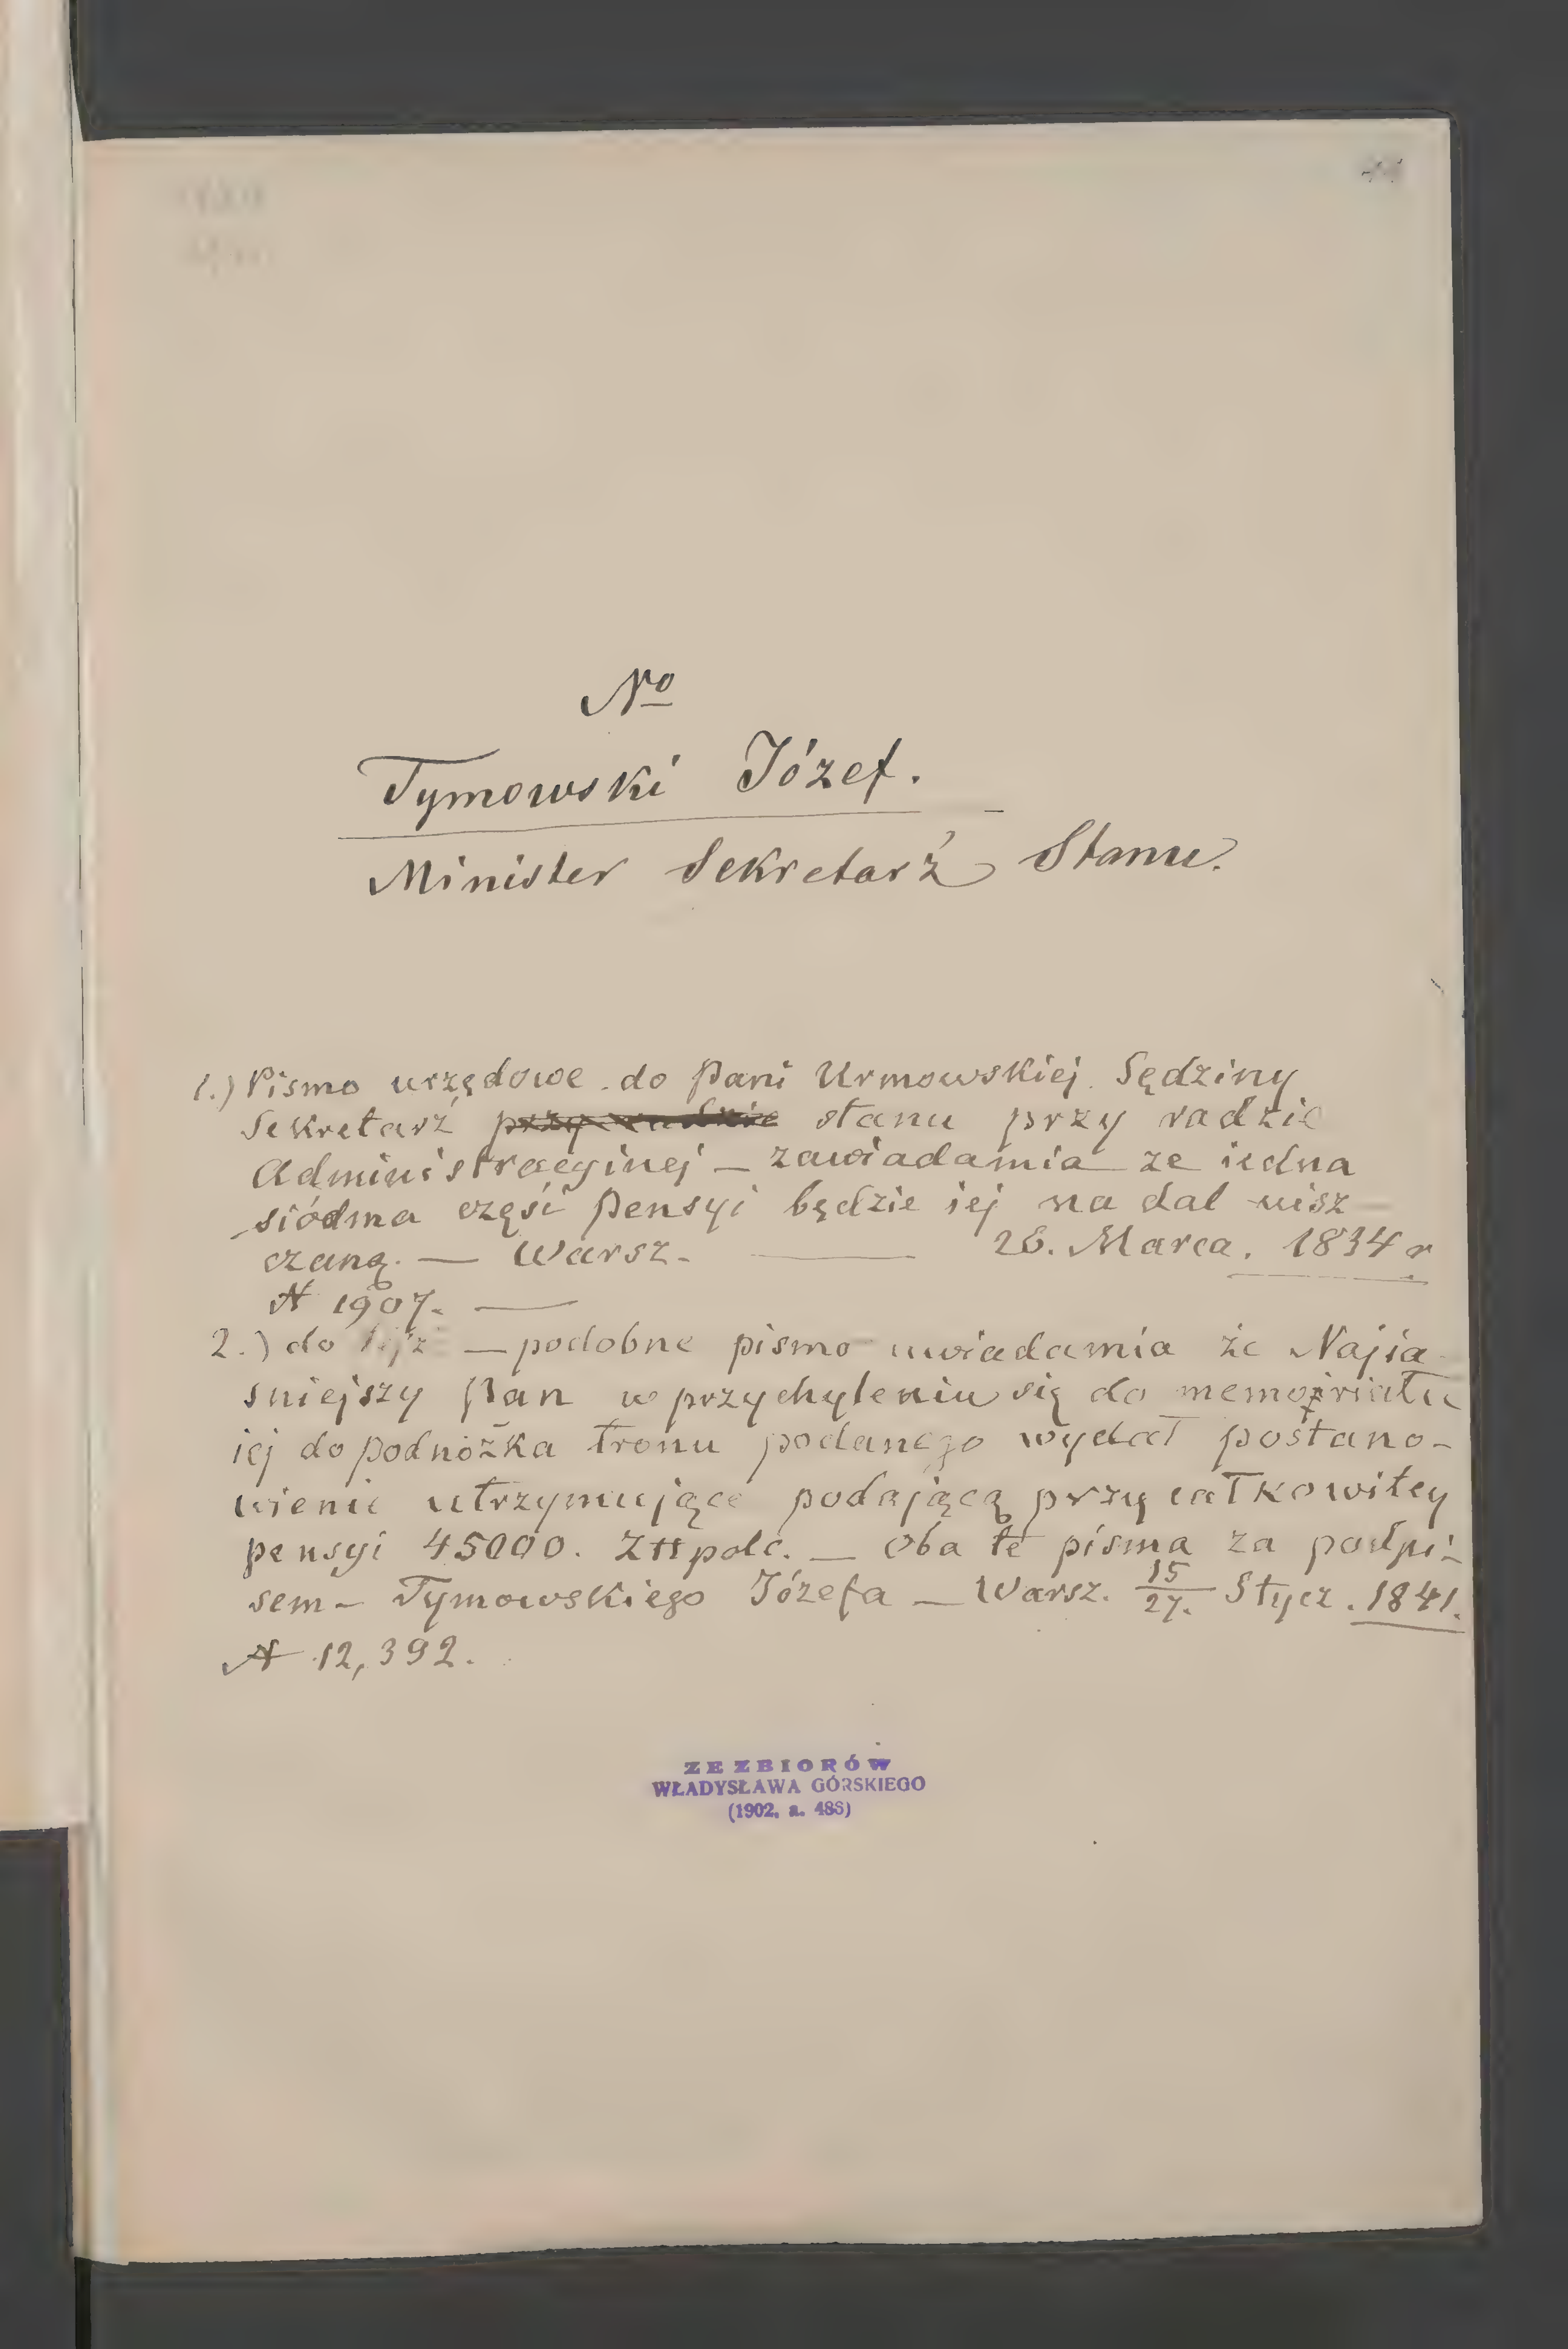 No
Tymowski Józef.
Minister Sekretarz Stanu.
1.) Pismo urzędowe do Pani Urmowskiej Sędziny
Sekretarz przy radzie stanu przy radzie
Administracyinej — zawiadamia ze iedna
siódma część Pensyi będzie iej na dal uisz
czaną. — Warsz. — 28. Marca. 1834 r
N 1907. —
2.) do tejże — podobne pismo uwiadamia że Najia
sniejszy Pan w przychyleniu się do memoriału
iej do podnóżka tronu podanego wydał postano-
wienie utrzymujące podającą przy całkowitey
pensyi 45000. Złł polc. — Oba te pisma za podpi-
sem — Tymowskiego Józefa — Warsz. 15/27. Stycz. 1841.
N 12,392.
ZE ZBIORÓW
WŁADYSŁAWA GÓRSKIEGO
(1902, a. 488)